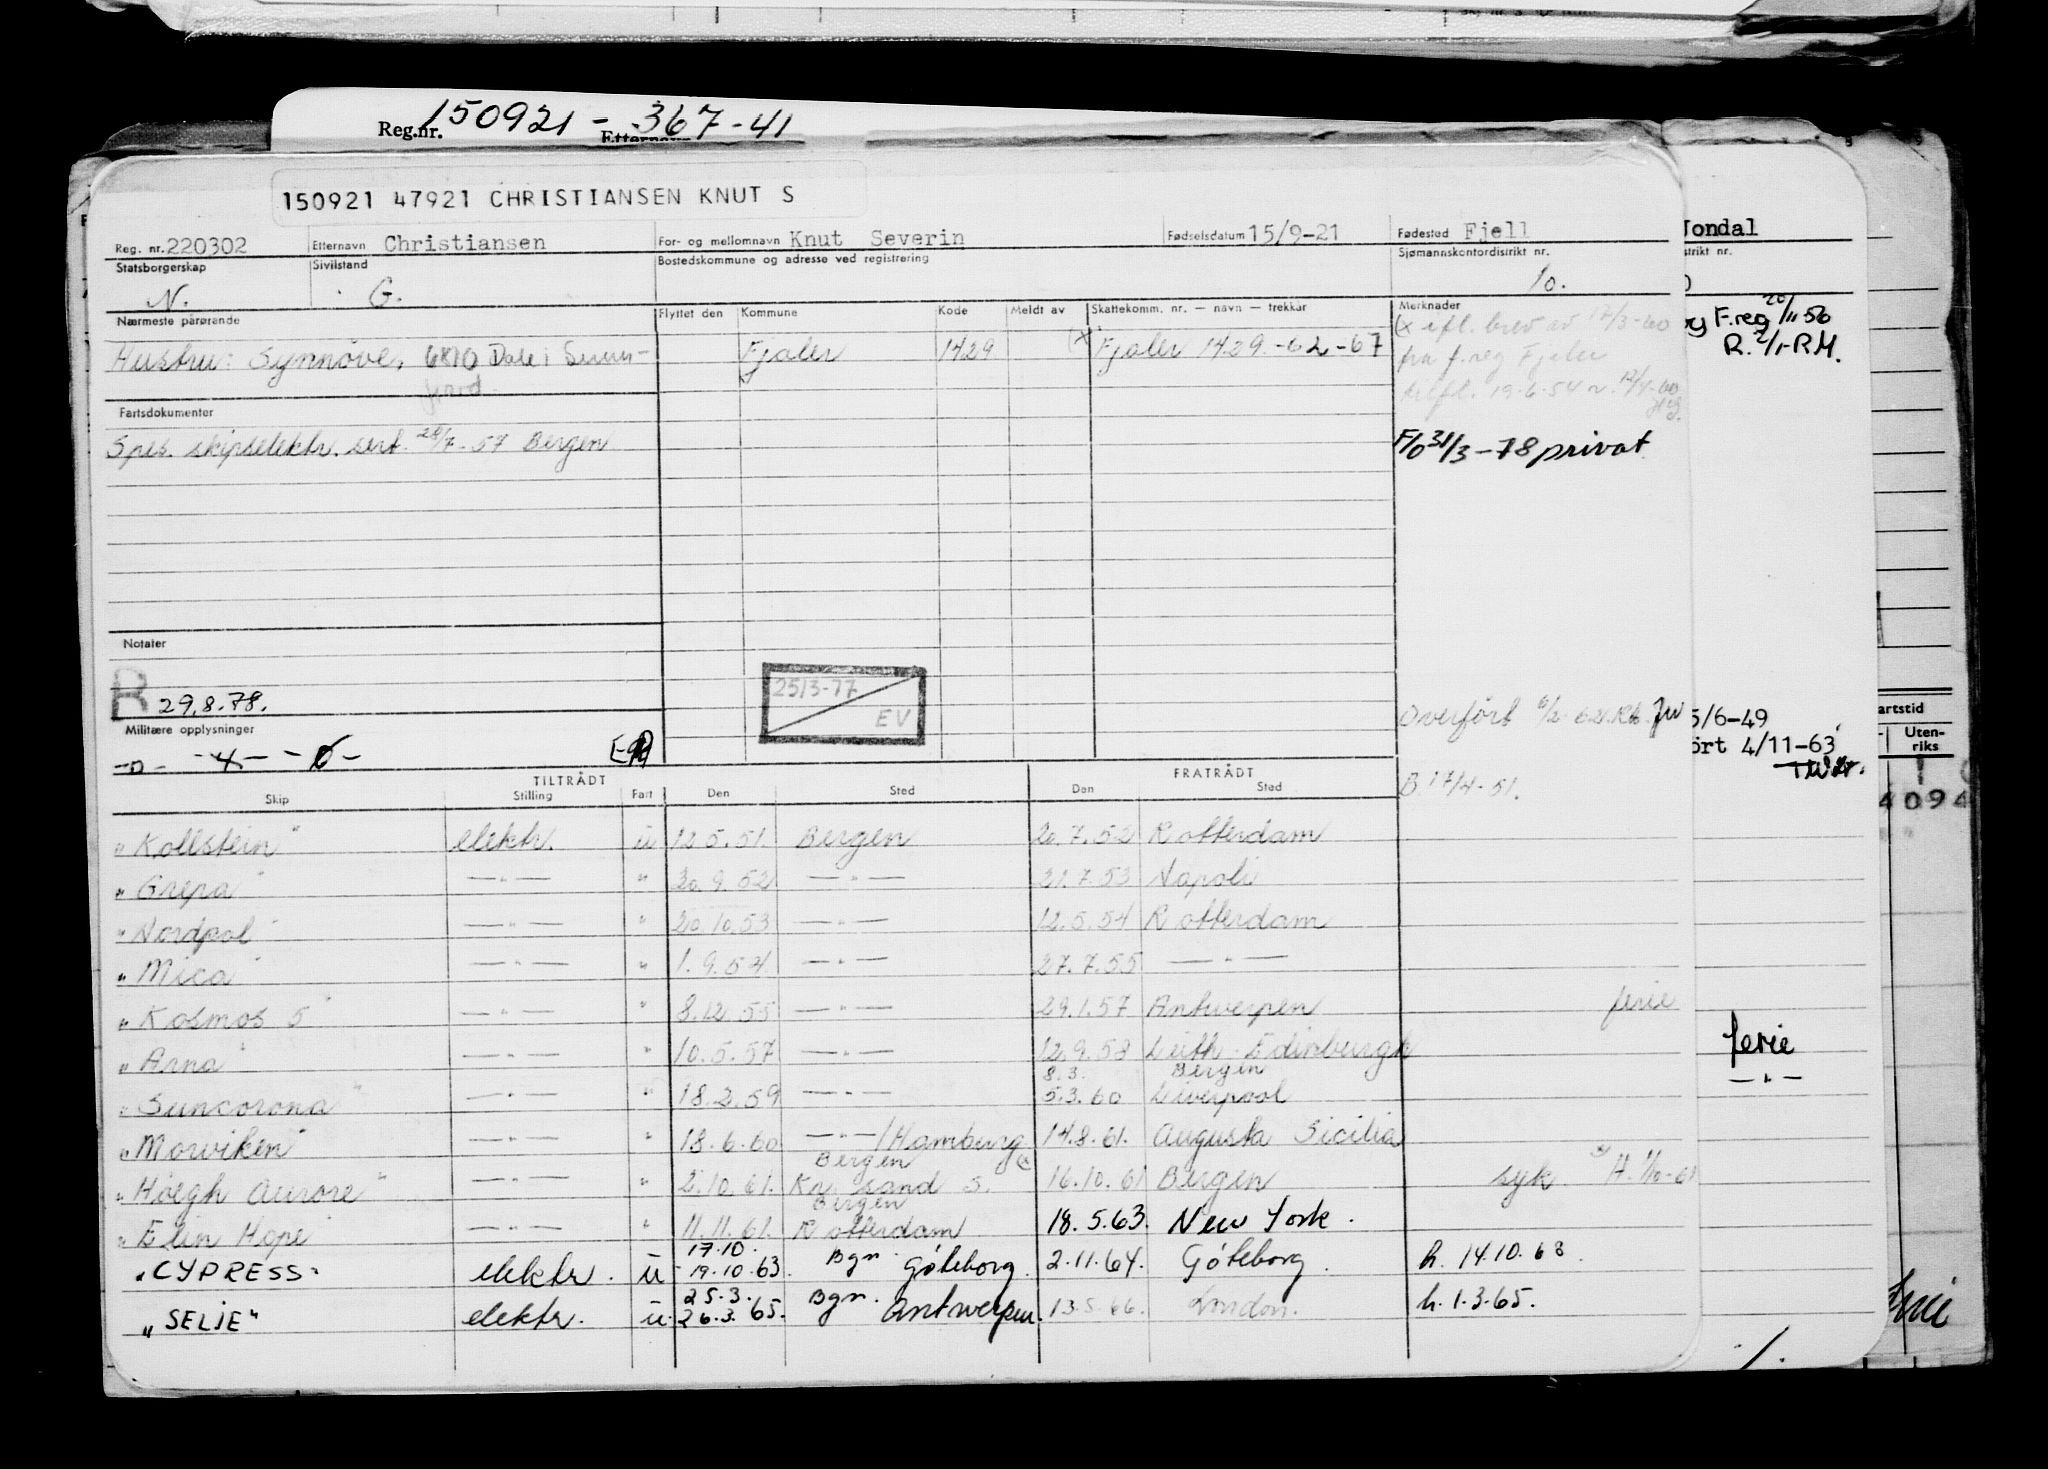 Reg.nr. 150921 - 367-41
150921 47921 CHRISTIANSEN KNUT S
Reg. nr. 220302 Etternavn Christiansen For- og mellomnavn Knut Severin Fødselsdatum 15/9-21 Fødested Fjell
Jondal
Statsborgerskap Sivilstand Bostedskommune og adresse ved registrering Sjømannskontordistrikt nr.
N. G. 10.
Nærmeste pårørende Flyttet den Kommune Kode Meldt av Skattekomm. nr. — navn — trekkår Merknader
Hustru: Synnøve, 6810 Dale i Sunn-
fjord
Fjaler 1429 (x Fjaler 1429 -62-67
(x efl. brev av 17/3-60
fra f.reg Fjaler
F.reg 20/11 56
R. 2/1-RM.
Fartsdokumenter
Spes. skipselektr. sert. 28/7-57 Bergen
F/O 31/3-78 privat
Notater
R 29.8.78.
25/3-77
EV
Overført 6/2-62
5/6-49
ørt 4/11-63
Militære opplysninger
artstid
Uten-
riks
TILTRÅDT FRATRÅDT
B. 17/4-51.
Skip Stilling Fart Den Sted Den Sted
"Kollstein" elektr. u 12.5.51. Bergen 20.7.52 Rotterdam
"Grepa" —"— " 20.9.52 —"— 21.7.53 Napoli
"Nordpol" —"— " 20.10.53 —"— 12.5.54 Rotterdam
"Mica" —"— " 1.9.54 —"— 27.7.55 —"—
"Kosmos 5" —"— " 8.12.55 —"— 29.1.57 Antwerpen ferie
"Arna" —"— " 10.5.57 —"— 12.9.58 Leith - Edinburgh
ferie
—"—
8.3. Bergen
"Suncorona" —"— " 18.2.59 —"— 5.3.60 Liverpool
"Morviken" —"— " 18.6.60 —"—/Hamburg 14.8.61. Augusta Sicilia
Bergen
"Høegh Aurore" —"— " 2.10.61. Kr. sand S. 16.10.61 Bergen syk
Bergen
"Elin Hope" —"— " 11.11.61. Rotterdam 18.5.63. New York.
17.10.
"CYPRESS" elektr. u 19.10.63. Bgn. Göteborg. 2.11.64. Göteborg. h. 14.10.63.
25.3.
"SELJE" elektr. u. 26.3.65. Bgn. Antwerpen. 13.5.66. London. h. 1.3.65.